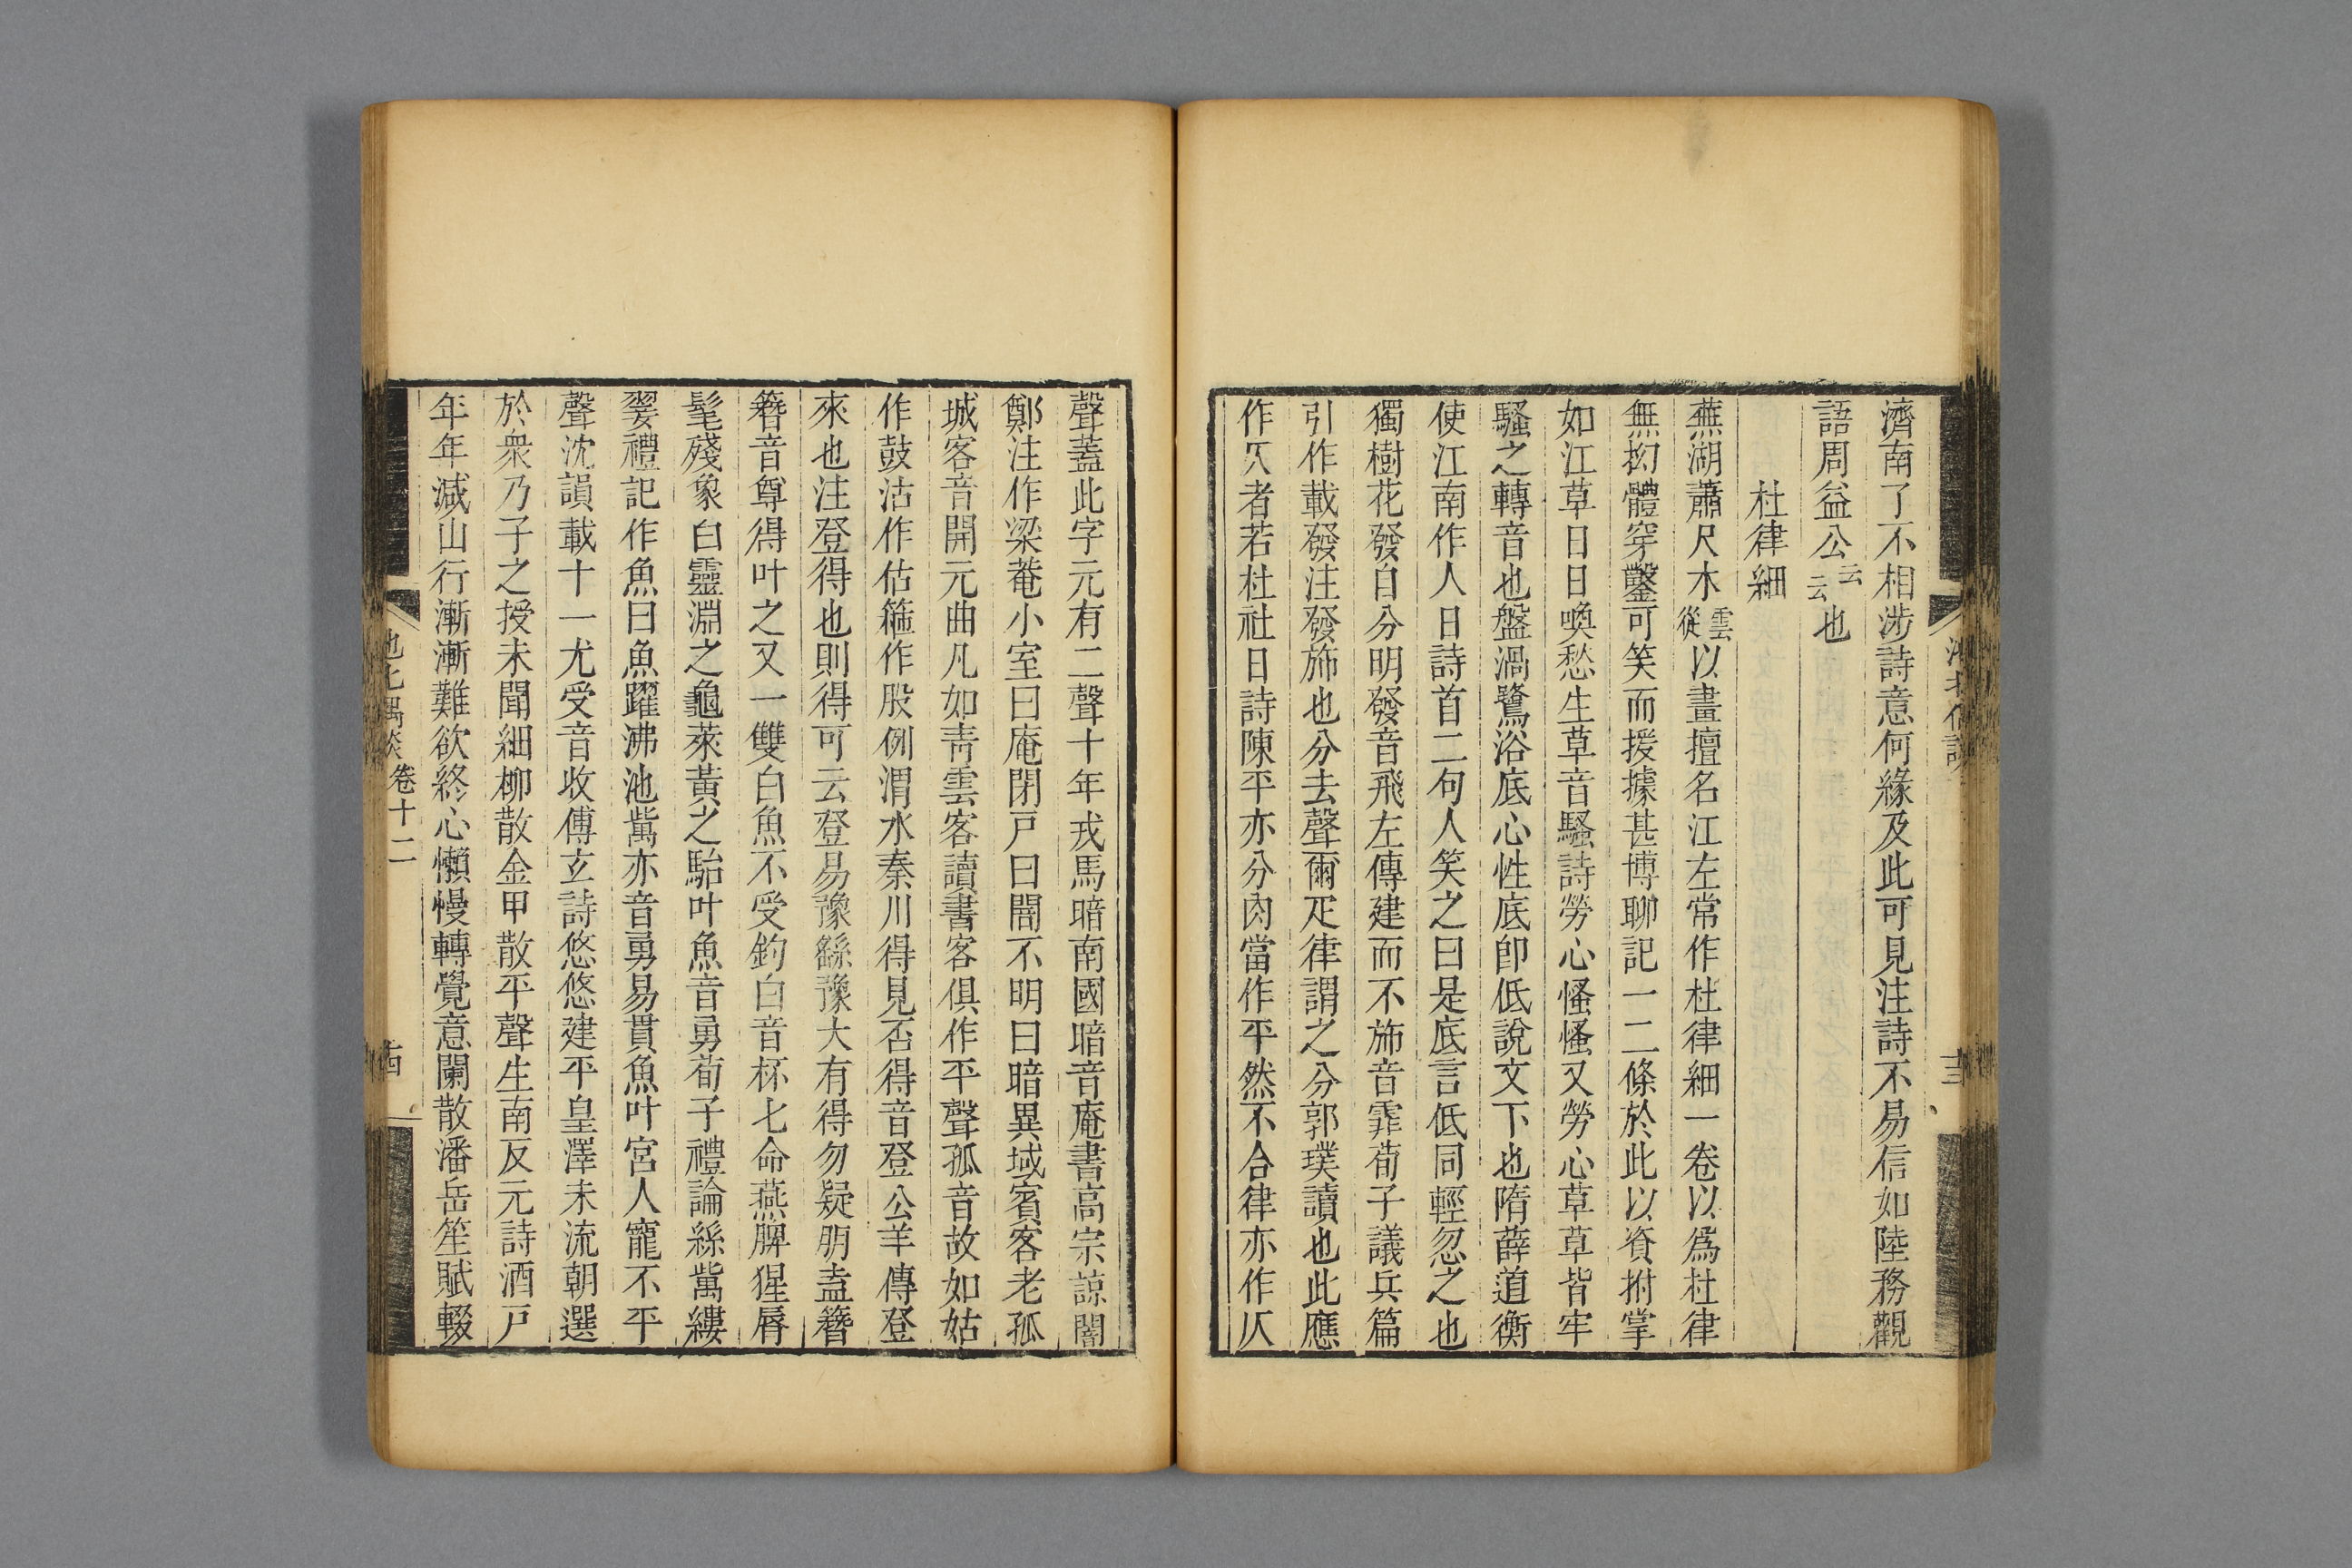 濟南了不相涉詩意何緣及此可見注詩不易信如陸務觀
語周益公云云也
杜律細
蕪湖蕭尺木雲從以畫擅名江左常作杜律細一卷以爲杜律
無抝體穿鑿可笑而援據甚博聊記一二條於此以資拊掌
如江草日日喚愁生草音騷詩勞心慅慅又勞心草草皆牢
騷之轉音也盤渦鷺浴底心性底卽低說文下也隋薛道衡
使江南作人日詩首二句人笑之曰是底言低同輕忽之也
獨樹花發自分明發音飛左傳建而不斾音霏荀子議兵篇
引作載發注發斾也分去聲爾疋律謂之分郭璞讀也此應
作仄者若杜社日詩陳平亦分肉當作平然不合律亦作仄
聲蓋此字元有二聲十年戎馬暗南國暗音庵書高宗諒闇
鄭注作梁菴小室曰庵閉戸曰闇不明曰暗異域賓客老孤
城客音開元曲凡如靑雲客讀書客俱作平聲孤音故如姑
作鼓沽作估箍作股例渭水秦川得見否得音登公羊傳登
來也注登得也則得可云登易豫繇豫大有得勿疑朋盍簪
簪音尊得叶之又一雙白魚不受釣白音杯七命燕髀猩脣
髦殘象白靈淵之龜萊黃之鮐叶魚音勇荀子禮論絲歶縷
翣禮記作魚曰魚躍沸池歶亦音勇易貫魚叶宮人寵不平
聲沈韻載十一尤受音收傅玄詩悠悠建平皇澤未流朝選
於衆乃子之授未聞細柳散金甲散平聲生南反元詩酒戸
年年減山行漸漸難欲終心懶慢轉覺意闌散潘岳笙賦輟
池北偶談 卷十二